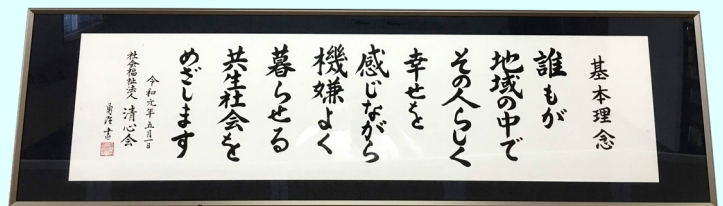 基本理念
誰もが
地域の中で
その人らしく
幸せを
感じながら
機嫌よく
暮らせる
共生社会を
めざします
令和元年五月一日
社会福祉法人 清心会